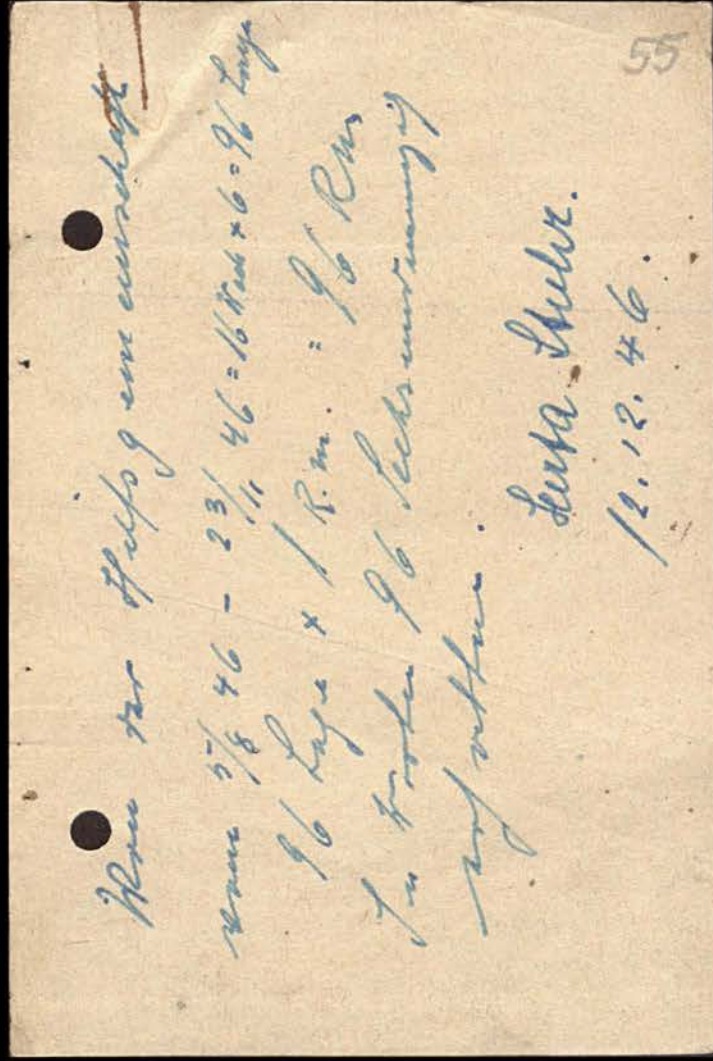 55
Von der Hilfsgemeinschaft
vom 5/8 46 - 23/11 46 = 16 Woch x 6 = 96 Tage
96 Tage x 1 R.m. = 96 Rm
In Worten 96 Sechsundneunzig
erhalten.
Herta Stuhr.
12.12.46.